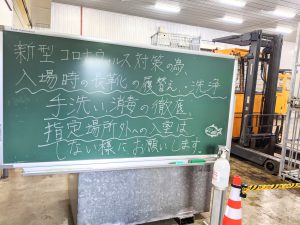 新型コロナウィルス対策の為、
入場時の長靴の履替え・洗浄
手洗い消毒の徹底、
指定場所外への入室は
しない様にお願いします。